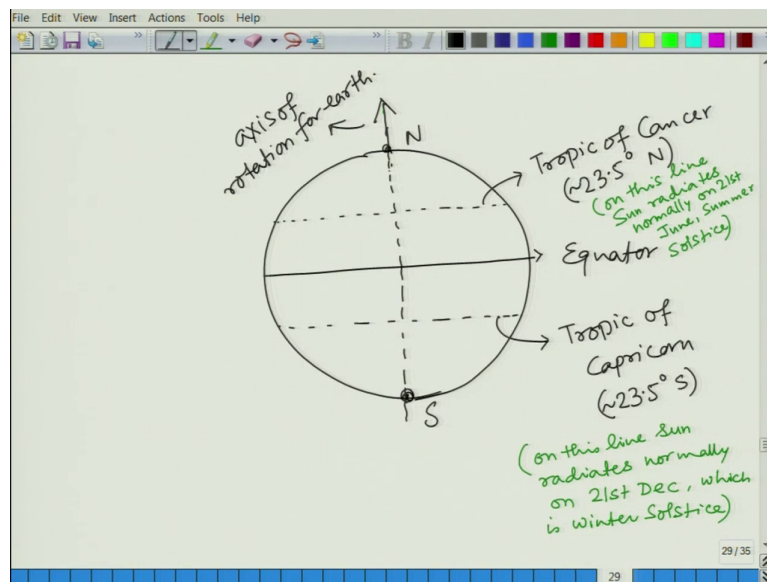 File Edit View Insert Actions Tools Help
B I
axis of
rotation for earth.
N
Tropic of Cancer
(~23.5° N)
(on this line
Sun radiates
normally on 21st
June, Summer
Solstice)
Equator
Tropic of
Capricorn
(~23.5° S)
S
(on this line Sun
radiates normally
on 21st Dec, which
is winter Solstice)
29 / 35
29